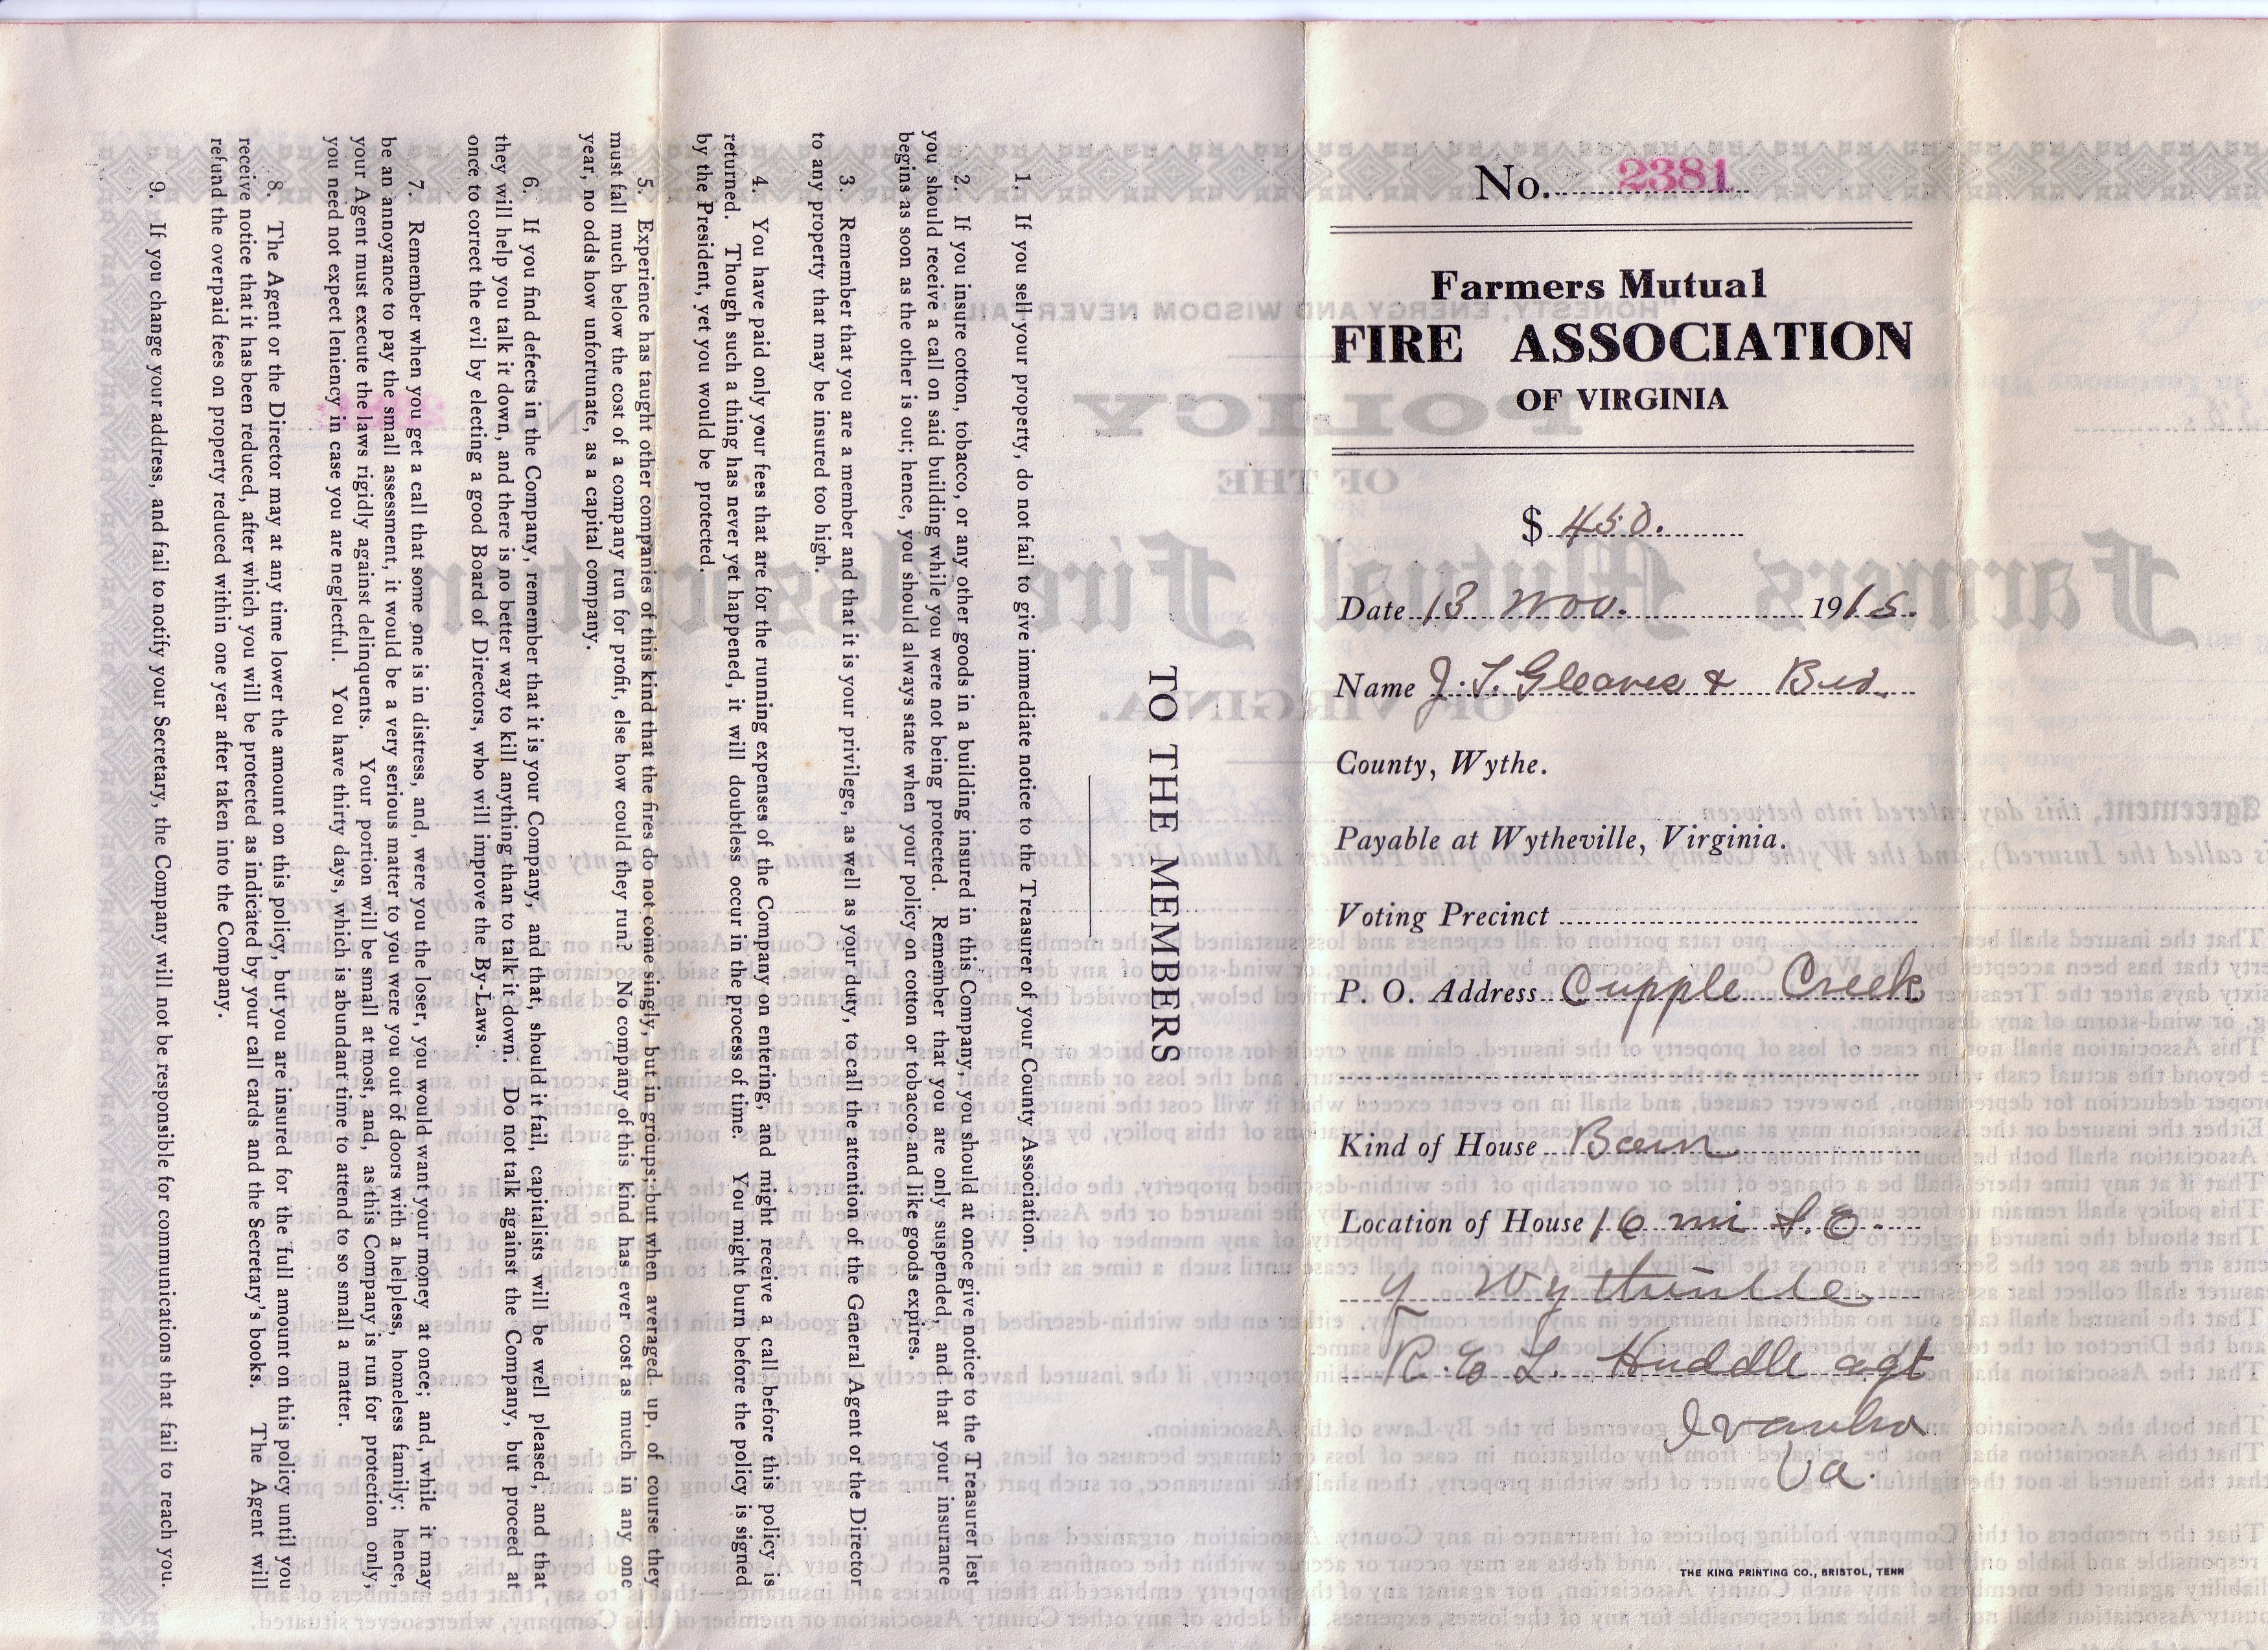 No. 2381
Farmers Mutual
FIRE ASSOCIATION
OF VIRGINIA
$ 450.
Date 13 Nov. 1915.
Name J. T. Gleaves & Bro.
County, Wythe.
Payable at Wytheville, Virginia.
Voting Precinct
P. O. Address Cripple Creek
Kind of House Barn
Location of House 16 mi S. E.
of Wytheville
R. E. L. Huddle agt
Ivanhoe
Va.
THE KING PRINTING CO., BRISTOL, TENN
TO THE MEMBERS
1. If you sell your property, do not fail to give immediate notice to the Treasurer of your County Association.
2. If you insure cotton, tobacco, or any other goods in a building insured in this Company, you should at once give notice to the Treasurer lest
you should receive a call on said building while you were not being protected. Remember that you are only suspended, and that your insurance
begins as soon as the other is out; hence, you should always state when your policy on cotton or tobacco and like goods expires.
3. Remember that you are a member and that it is your privilege, as well as your duty, to call the attention of the General Agent or the Director
to any property that may be insured too high.
4. You have paid only your fees that are for the running expenses of the Company on entering, and might receive a call before this policy is
returned. Though such a thing has never yet happened, it will doubtless occur in the process of time. You might burn before the policy is signed
by the President, yet you would be protected.
5. Experience has taught other companies of this kind that the fires do not come singly, but in groups; but when averaged up, of course they
must fall much below the cost of a company run for profit, else how could they run? No company of this kind has ever cost as much in any one
year, no odds how unfortunate, as a capital company.
6. If you find defects in the Company, remember that it is your Company, and that, should it fail, capitalists will be well pleased, and that
they will help you talk it down, and there is no better way to kill anything than to talk it down. Do not talk against the Company, but proceed at
once to correct the evil by electing a good Board of Directors, who will improve the By-Laws.
7. Remember when you get a call that some one is in distress, and, were you the loser, you would want your money at once; and, while it may
be an annoyance to pay the small assessment, it would be a very serious matter to you were you out of doors with a helpless, homeless family; hence,
your Agent must execute the laws rigidly against delinquents. Your portion will be small at most, and, as this Company is run for protection only,
you need not expect leniency in case you are neglectful. You have thirty days, which is abundant time to attend to so small a matter.
8. The Agent or the Director may at any time lower the amount on this policy, but you are insured for the full amount on this policy until you
receive notice that it has been reduced, after which you will be protected as indicated by your call cards and the Secretary's books. The Agent will
refund the overpaid fees on property reduced within one year after taken into the Company.
9. If you change your address, and fail to notify your Secretary, the Company will not be responsible for communications that fail to reach you.